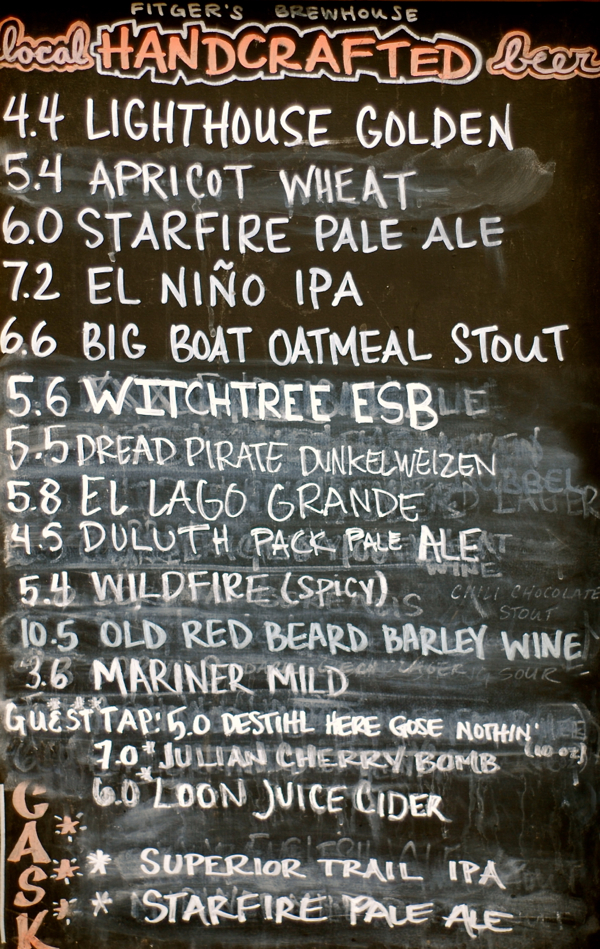 FITGER'S BREWHOUSE
local HANDCRAFTED beer
4.4 LIGHTHOUSE GOLDEN
5.4 APRICOT WHEAT
6.0 STARFIRE PALE ALE
7.2 EL NIÑO IPA
6.6 BIG BOAT OATMEAL STOUT
5.6 WITCHTREE ESB
5.5 DREAD PIRATE DUNKELWEIZEN
5.8 EL LAGO GRANDE
4.5 DULUTH PACK PALE ALE
5.4 WILDFIRE (SPICY)
CHILI CHOCOLATE
STOUT
10.5 OLD RED BEARD BARLEY WINE
3.6 MARINER MILD
GUEST TAP: 5.0 DESTIHL HERE GOSE NOTHIN'
7.0* JULIAN CHERRY BOMB (10 OZ)
6.0* LOON JUICE CIDER
CASK
* SUPERIOR TRAIL IPA
* STARFIRE PALE ALE